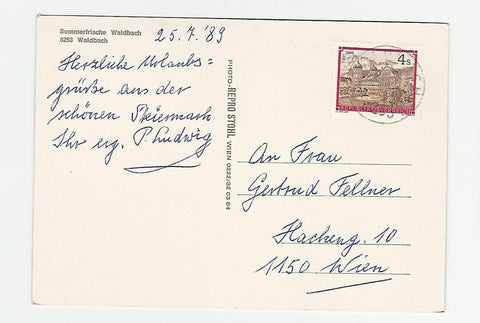 Sommerfrische Waldbach
8253 Waldbach
25.7.'89
Herzliche Urlaubs=
grüße aus der
schönen Steiermark
Ihr erg. P. Ludwig
PHOTO-REPRO STUHL WIEN 0222/92 03 64
4s
REPUBLIK ÖSTERREICH
An Frau
Gertrud Fellner
Hackeng. 10
1150 Wien